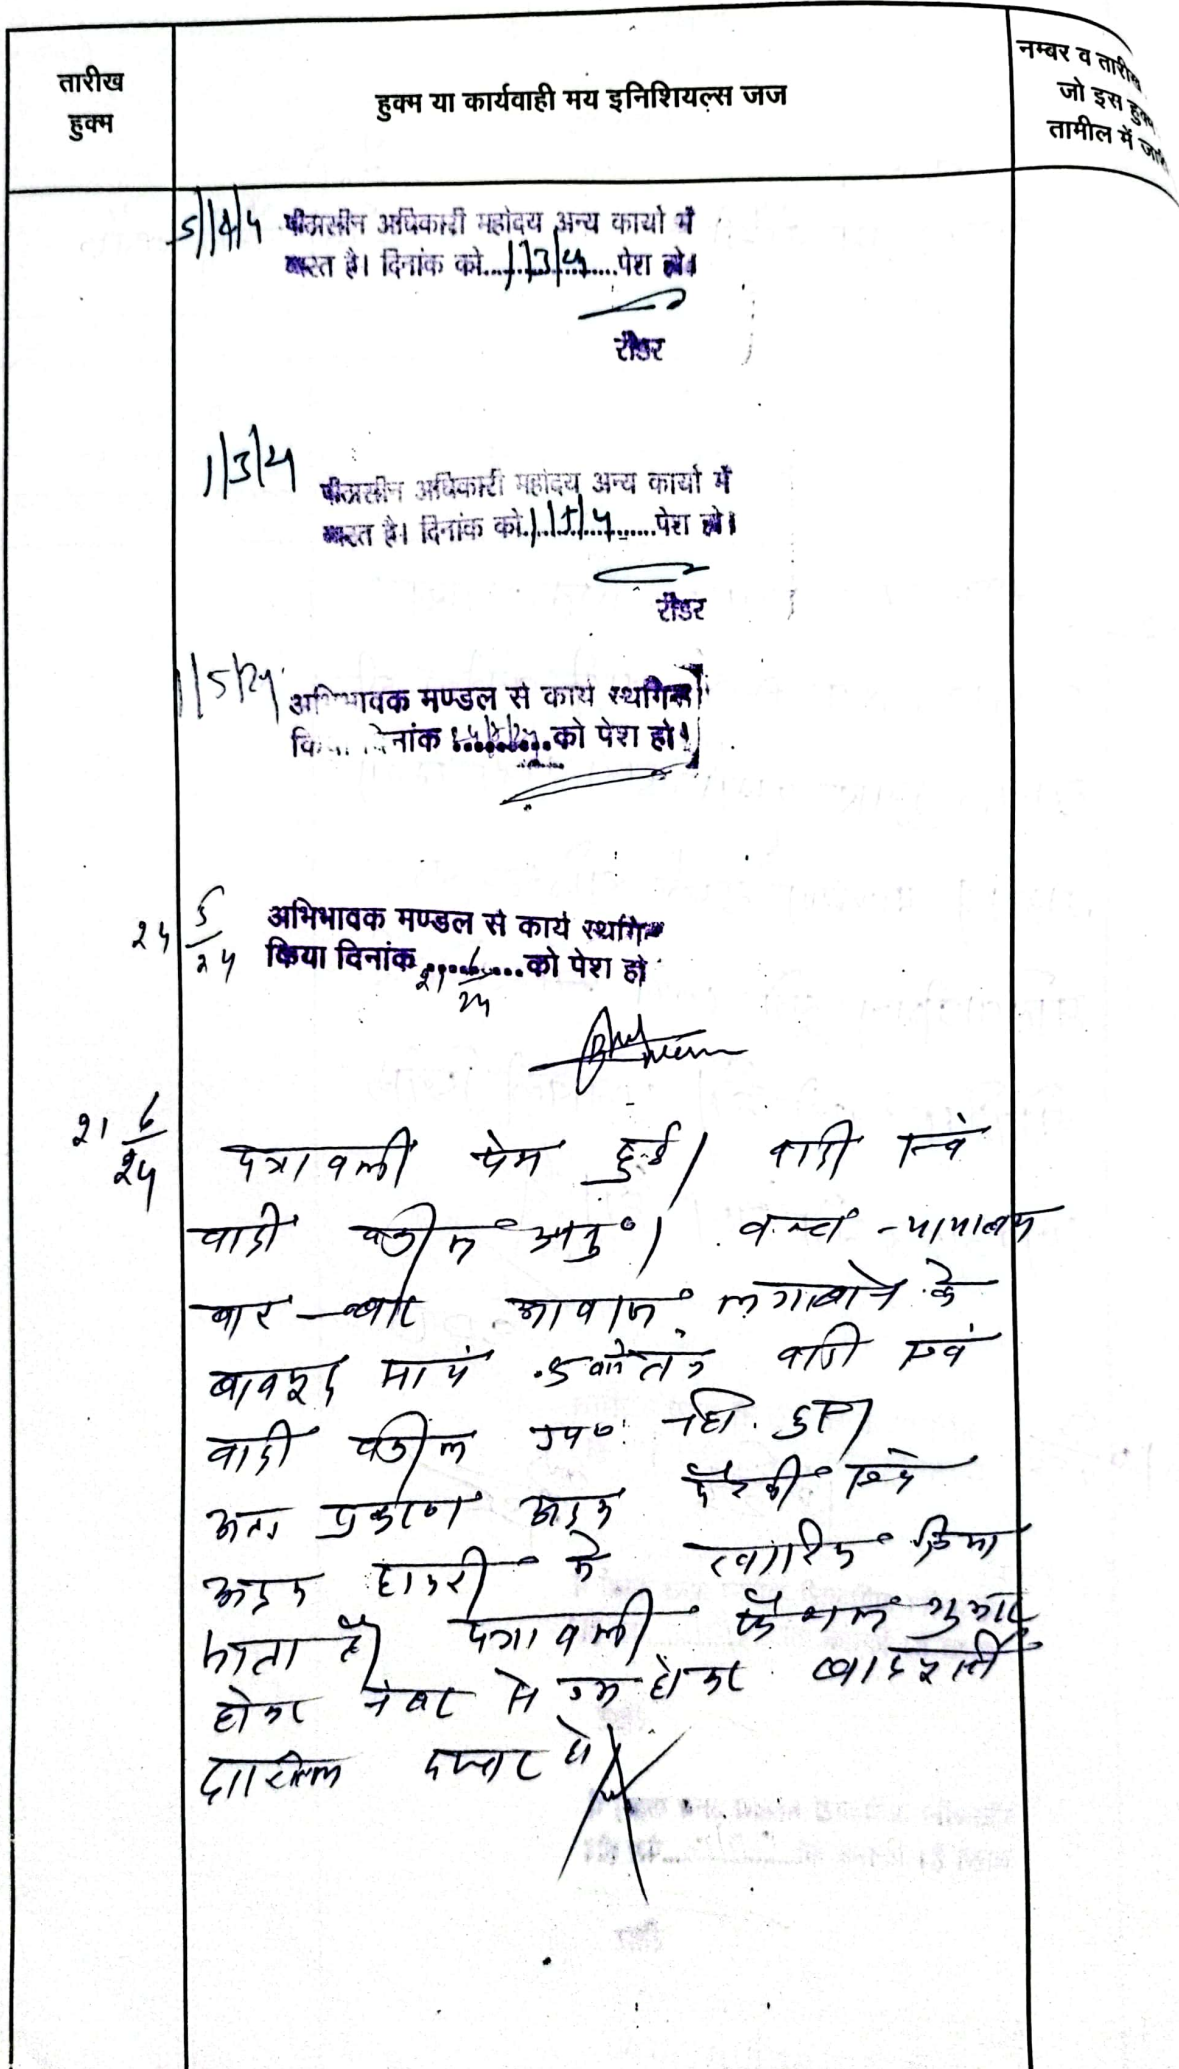 तारीख
हुक्म
हुक्म या कार्यवाही मय इनिशियल्स जज
नम्बर व तारीख
जो इस हुक्म
तामील में
पीठासीन अधिकारी महोदय अन्य कार्यो में
व्यस्त है। दिनांक को 1/3/24 पेश हो।
रीडर
1/3/24
पीठासीन अधिकारी महोदय अन्य कार्यो में
व्यस्त है। दिनांक को 1/5/24 पेश हो।
रीडर
1/5/24
अभिभावक मण्डल से कार्य स्थगित
किया दिनांक को पेश हो।
24 5/24
अभिभावक मण्डल से कार्य स्थगित
किया दिनांक 21 6/24 को पेश हो
21 6/24
पत्रावली पेश हुई। वादी एवं
वादी वकील अनु०। वक्त न्यायालय
बार-बार आवाज लगाने के
बावजूद सायं 5 बजे तक वादी एवं
वादी वकील उप० नहीं हुए।
अतः प्रकरण अदम पैरवी एवं
अदम हाजरी में खारिज किया
जाता है। पत्रावली फैसल शुमार
होकर नंबर से कम होकर
दाखिल दफ्तर हो।